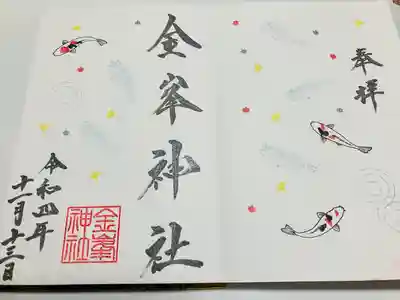 奉拝
金峯神社
金峯
神社
令和四年
十一月十三日